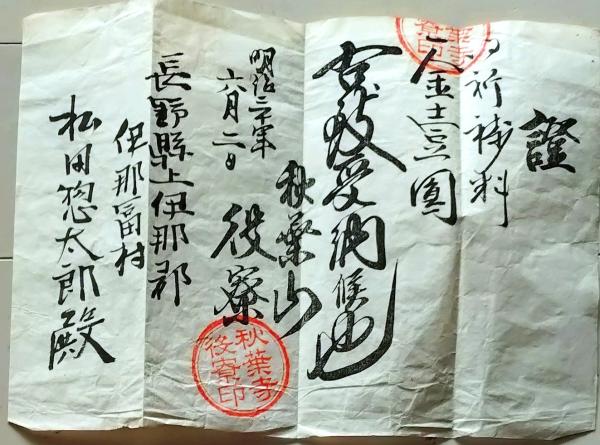 證
祈祷料
一金壱圓
右致受納候也
明治三十年
六月二日
秋葉山
役寮
長野縣上伊那郡
伊那富村
松田惣太郎殿
秋葉寺
役寮印